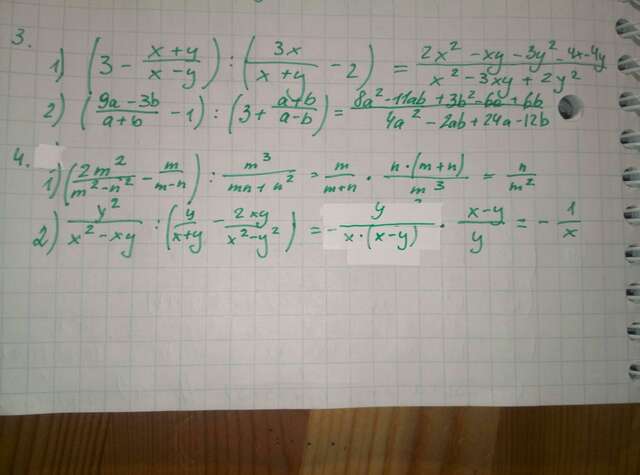 3.
1) (3 - (x+y)/(x-y)) : (3x/(x+y) - 2) = (2x² - xy - 3y² - 4x - 4y)/(x² - 3xy + 2y²)
2) ((9a - 3b)/(a+b) - 1) : (3 + (a+b)/(a-b)) = (8a² - 11ab + 3b² - 6a + 6b)/(4a² - 2ab + 24a - 12b)
4.
1) (2m²/(m² - n²) - m/(m-n)) : m³/(mn + n²) = m/(m+n) · n·(m+n)/m³ = n/m²
2) y²/(x² - xy) : (y/(x+y) - 2xy/(x² - y²)) = - y/(x·(x-y)) · (x-y)/y = - 1/x